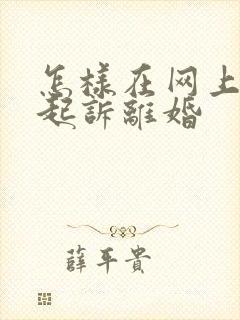 怎樣在网上
起訴離婚
薛平貴